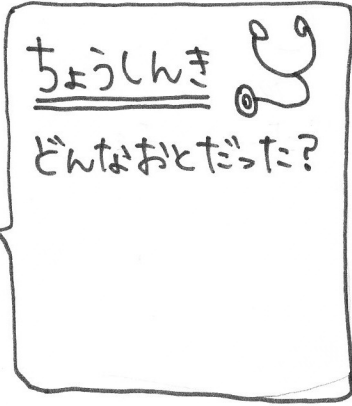 ちょうしんき
どんなおとだった?